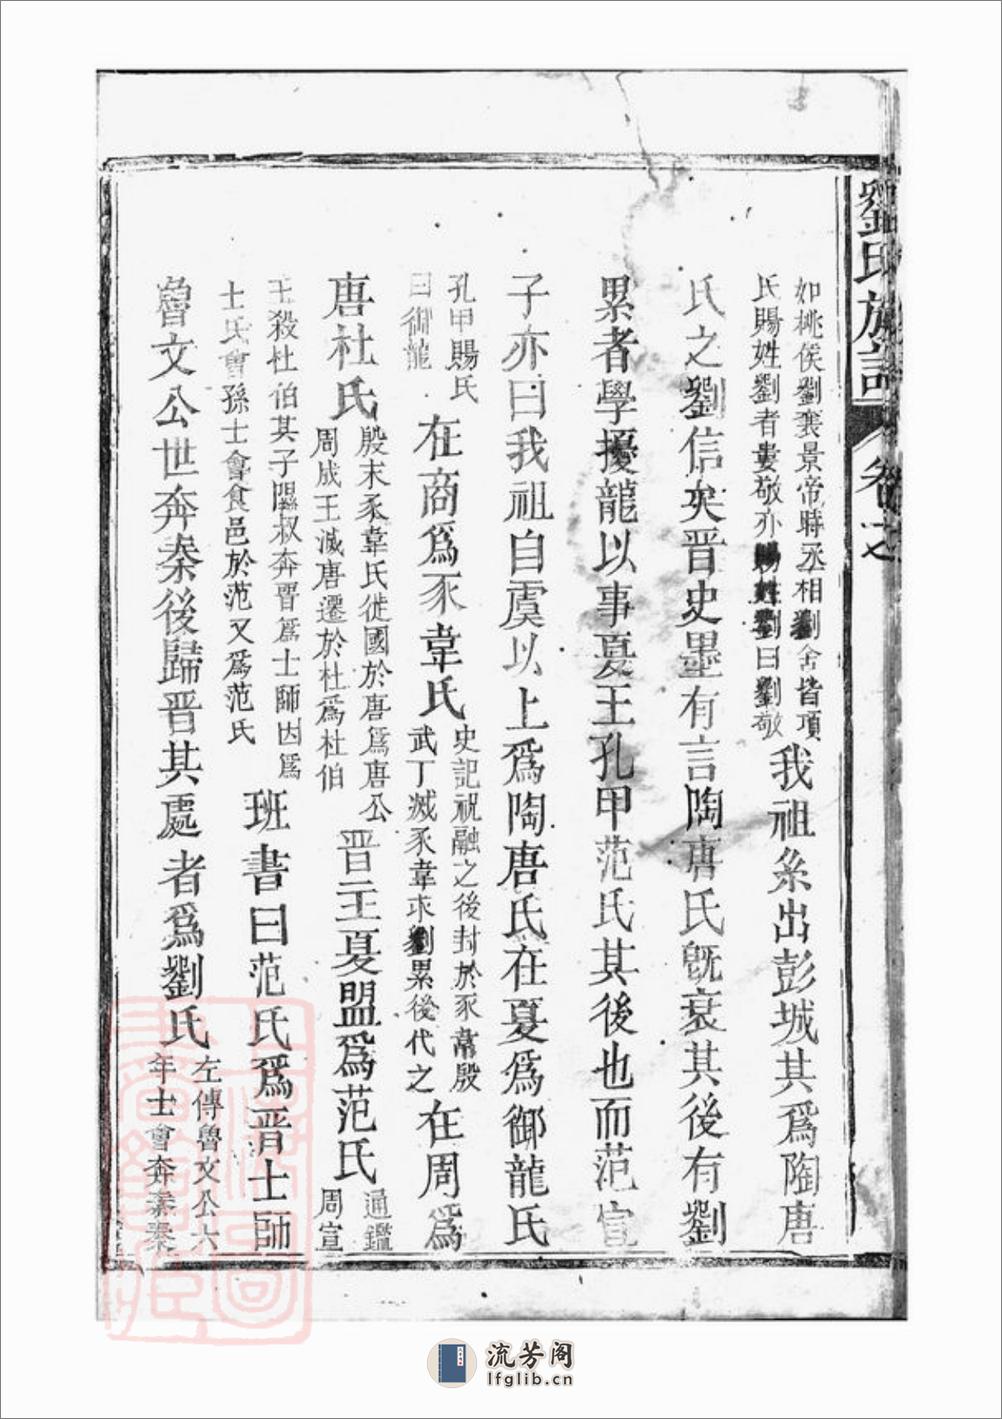 劉氏族譜 卷之
如桃侯劉襄景帝時丞相劉舍皆項
氏賜姓劉者婁敬亦賜姓劉曰劉敬
我祖系出彭城其爲陶唐
氏之劉信矣晋史墨有言陶唐氏旣衰其後有劉
累者學擾龍以事夏王孔甲范氏其後也而范宣
子亦曰我祖自虞以上爲陶唐氏在夏爲御龍氏
孔甲賜氏
曰御龍
在商爲豕韋氏
史記祝融之後封於豕韋殷
武丁滅豕韋求劉累後代之
在周爲
唐杜氏
殷末豕韋氏徙國於唐爲唐公
周成王滅唐遷於杜爲杜伯
晋主夏盟爲范氏
通鑑
周宣
王殺杜伯其子隰叔奔晋爲士師因爲
士氏會孫士會食邑於范又爲范氏
班書曰范氏爲晋士師
魯文公世奔秦後歸晋其處者爲劉氏
左傳魯文公六
年士會奔秦秦
流芳阁
lfglib.cn